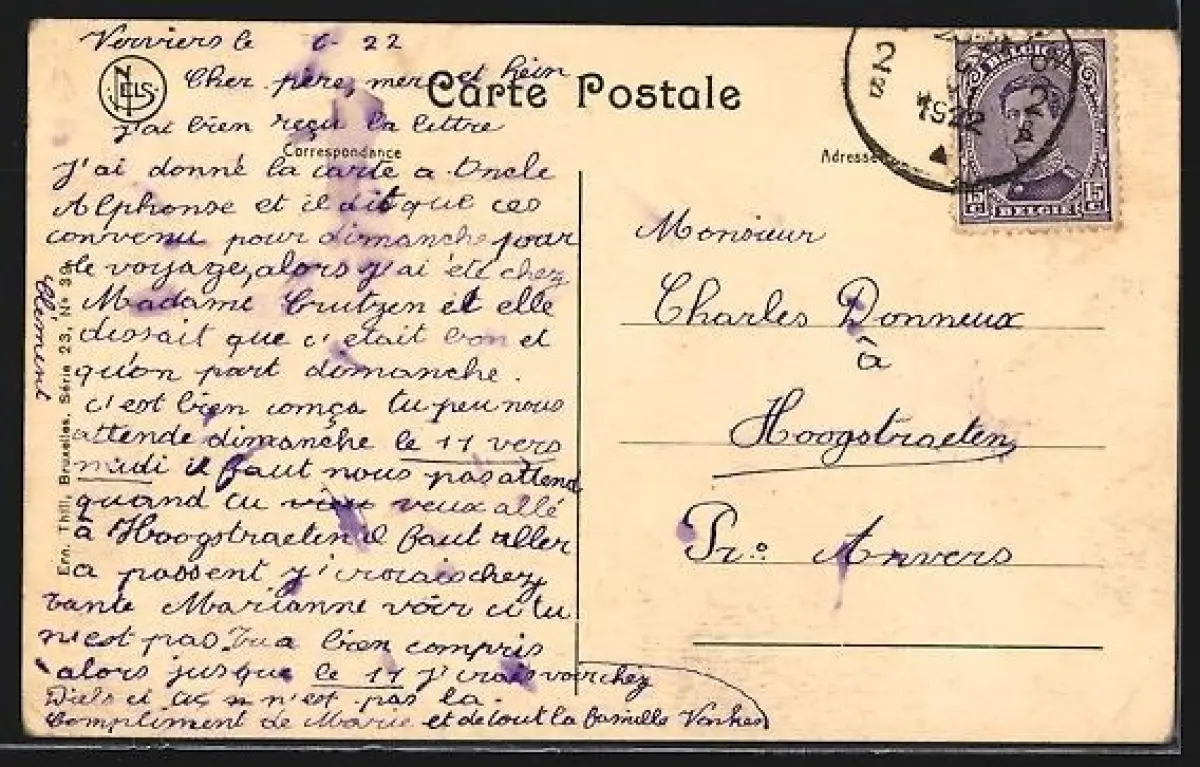 Verviers le 6- 22
Cher père, mer et hein
NELS
Carte Postale
j'ai bien reçu la lettre
Correspondance
Adresse
1922
BELGIQUE
15 C 15 C
BELGIË
J'ai donné la carte a Oncle
Alphonse et il dit que ces
convenu pour dimanche pour
le voyage, alors j'ai été chez
Madame Crutzen et elle
dissait que c'était bon et
qu'on part dimanche.
c'est bien comça tu peu nous
attende dimanche le 11 vers
midi il faut nous pas attend
quand tu veux allé
à Hoogstraeten il faut aller
a passent j'irais chez
tante Marianne voir ci tu
n'est pas Tu a bien compris
alors jusque le 11 j'irais voir chez
ci n'est pas la.
Compliment de Marie et de tout la famille
Clément
Ern. Thill, Bruxelles. Série 23, N° 39
Monsieur
Charles Donneux
à
Hoogstraeten
Pr. Anvers